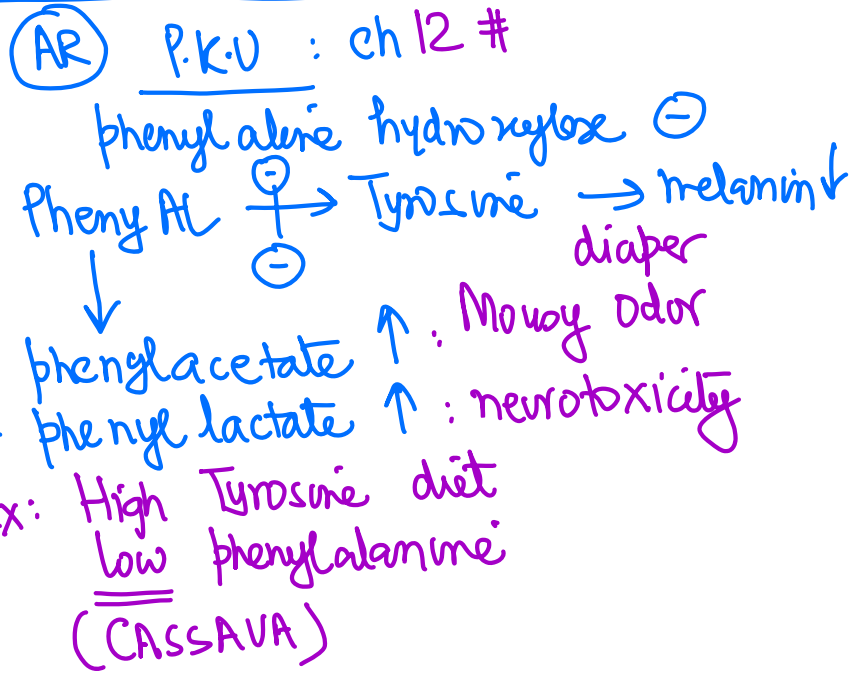 AR P.K.U : ch 12 #
phenylalanine hydroxylase ⊖
Pheny AL ⊖ → Tyrosine → melanin ↓
⊖ diaper
↓ Mousy odor
phenylacetate ↑ :
phenyl lactate ↑ : neurotoxicity
x: High Tyrosine diet
low phenylalanine
(CASSAVA)